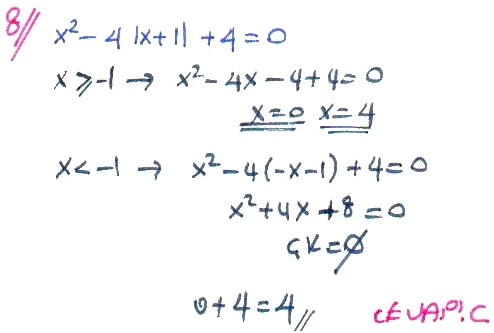 8//
x² - 4 |x+1| + 4 = 0
x ≥ -1 → x² - 4x - 4 + 4 = 0
x = 0 x = 4
x < -1 → x² - 4(-x-1) + 4 = 0
x² + 4x + 8 = 0
ÇK = ∅
0 + 4 = 4 //
CEVAP: C